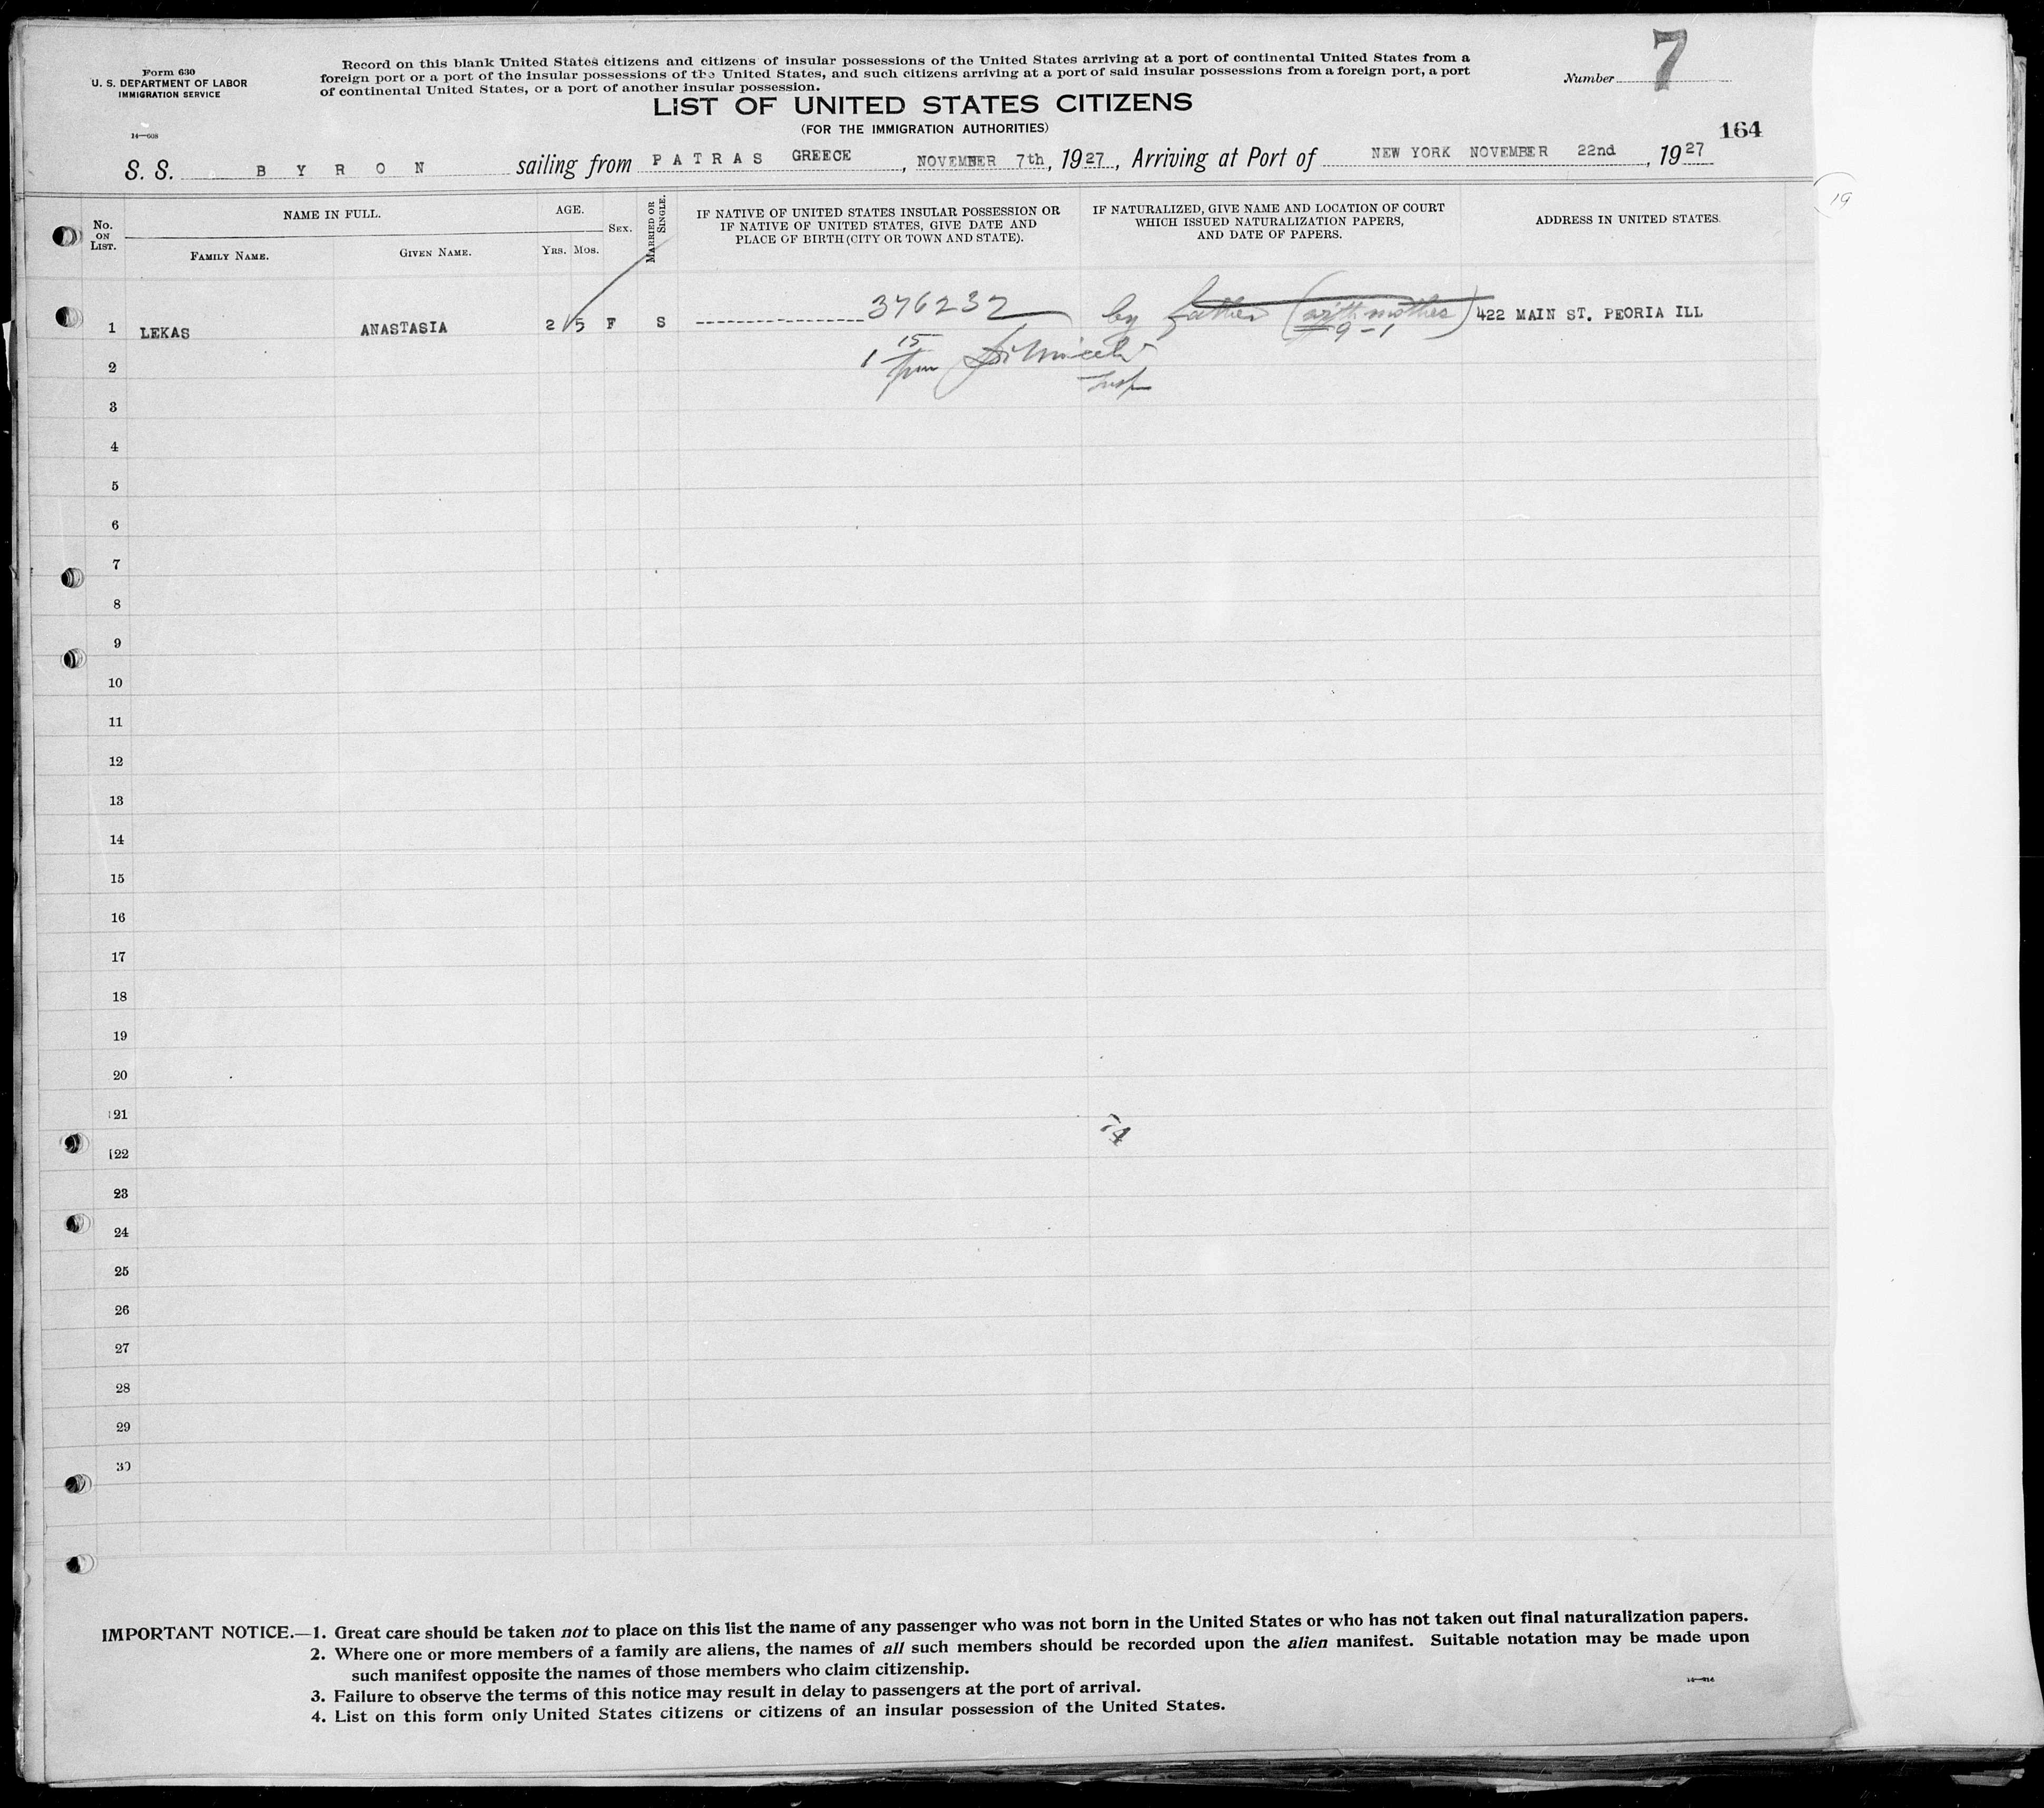 Form 630
U. S. DEPARTMENT OF LABOR
IMMIGRATION SERVICE
14—608
Record on this blank United States citizens and citizens of insular possessions of the United States arriving at a port of continental United States from a
foreign port or a port of the insular possessions of the United States, and such citizens arriving at a port of said insular possessions from a foreign port, a port
of continental United States, or a port of another insular possession.
Number 7
LIST OF UNITED STATES CITIZENS
(FOR THE IMMIGRATION AUTHORITIES)
164
S. S. BYRON sailing from PATRAS GREECE, NOVEMBER 7th, 1927, Arriving at Port of NEW YORK NOVEMBER 22nd, 1927
19
No. ON LIST.
NAME IN FULL.
FAMILY NAME.
GIVEN NAME.
AGE.
YRS. MOS.
SEX.
MARRIED OR SINGLE.
IF NATIVE OF UNITED STATES INSULAR POSSESSION OR
IF NATIVE OF UNITED STATES, GIVE DATE AND
PLACE OF BIRTH (CITY OR TOWN AND STATE).
IF NATURALIZED, GIVE NAME AND LOCATION OF COURT
WHICH ISSUED NATURALIZATION PAPERS,
AND DATE OF PAPERS.
ADDRESS IN UNITED STATES.
1 LEKAS ANASTASIA 2 5 F S 376232 by father (with mother) 422 MAIN ST. PEORIA ILL
9-1
1 15
Insp
2
3
4
5
6
7
8
9
10
11
12
13
14
15
16
17
18
19
20
21
74
22
23
24
25
26
27
28
29
30
IMPORTANT NOTICE.—1. Great care should be taken not to place on this list the name of any passenger who was not born in the United States or who has not taken out final naturalization papers.
2. Where one or more members of a family are aliens, the names of all such members should be recorded upon the alien manifest. Suitable notation may be made upon
such manifest opposite the names of those members who claim citizenship.
3. Failure to observe the terms of this notice may result in delay to passengers at the port of arrival.
4. List on this form only United States citizens or citizens of an insular possession of the United States.